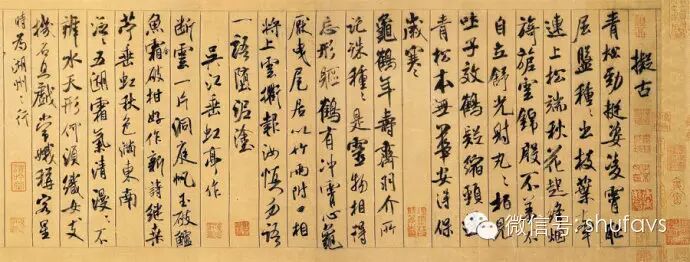 擬古
青松勁挺姿凌霄恥
屈盤種種出枝葉牽
連上松端秋花起絳煙
旖旎雲錦殷不羞不
自立舒光射丸丸柏見
吐子效鶴疑縮頸還
青松本無華安得保
歲寒
龜鶴年壽齊羽介所
託殊種種是靈物相得
忘形軀鶴有沖霄心龜
厭曳尾居以竹兩附口相
將上雲衢報汝慎勿語
一語墮泥塗
吳江垂虹亭作
斷雲一片洞庭帆玉破鱸
魚霜破柑好作新詩繼桑
苧垂虹秋色滿東南
泛泛五湖霜氣清漫漫不
辨水天形何須織女支
機石且戲常娥稱客星
時為湖州之行
微信号: shufavs